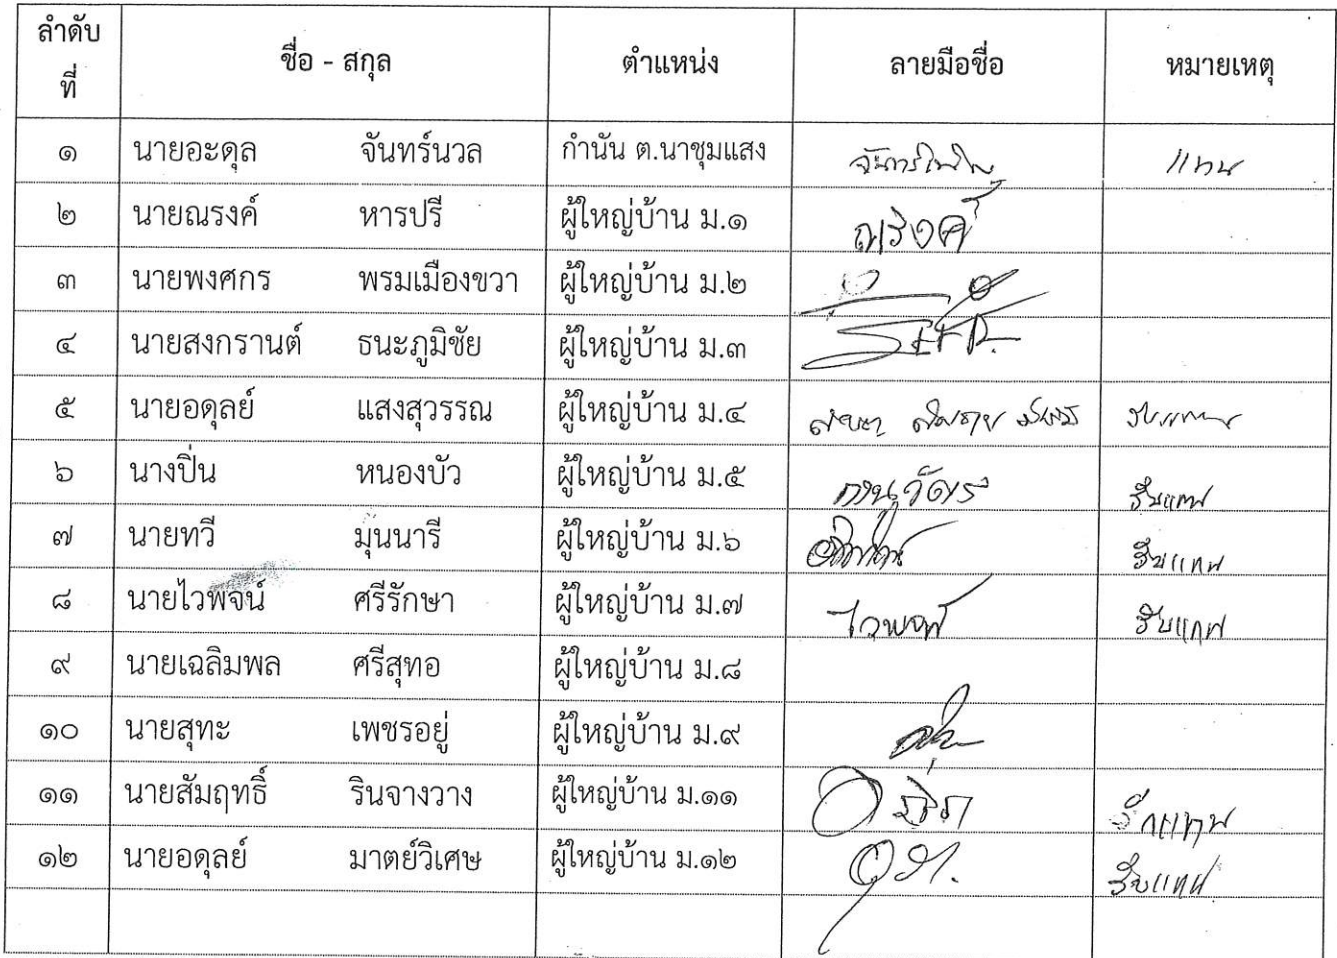 ลำดับ ที่ ชื่อ - สกุล ตำแหน่ง ลายมือชื่อ หมายเหตุ
๑ นายอะดุล จันทร์นวล กำนัน ต.นาชุมแสง แทน
๒ นายณรงค์ หารปรี ผู้ใหญ่บ้าน ม.๑ ณรงค์
๓ นายพงศกร พรมเมืองขวา ผู้ใหญ่บ้าน ม.๒
๔ นายสงกรานต์ ธนะภูมิชัย ผู้ใหญ่บ้าน ม.๓
๕ นายอดุลย์ แสงสุวรรณ ผู้ใหญ่บ้าน ม.๔ รับแทน
๖ นางปิ่น หนองบัว ผู้ใหญ่บ้าน ม.๕ รับแทน
๗ นายทวี มุนนารี ผู้ใหญ่บ้าน ม.๖ รับแทน
๘ นายไวพจน์ ศรีรักษา ผู้ใหญ่บ้าน ม.๗ ไวพจน์ รับแทน
๙ นายเฉลิมพล ศรีสุทอ ผู้ใหญ่บ้าน ม.๘
๑๐ นายสุทะ เพชรอยู่ ผู้ใหญ่บ้าน ม.๙
๑๑ นายสัมฤทธิ์ รินจางวาง ผู้ใหญ่บ้าน ม.๑๑ รับแทน
๑๒ นายอดุลย์ มาตย์วิเศษ ผู้ใหญ่บ้าน ม.๑๒ รับแทน